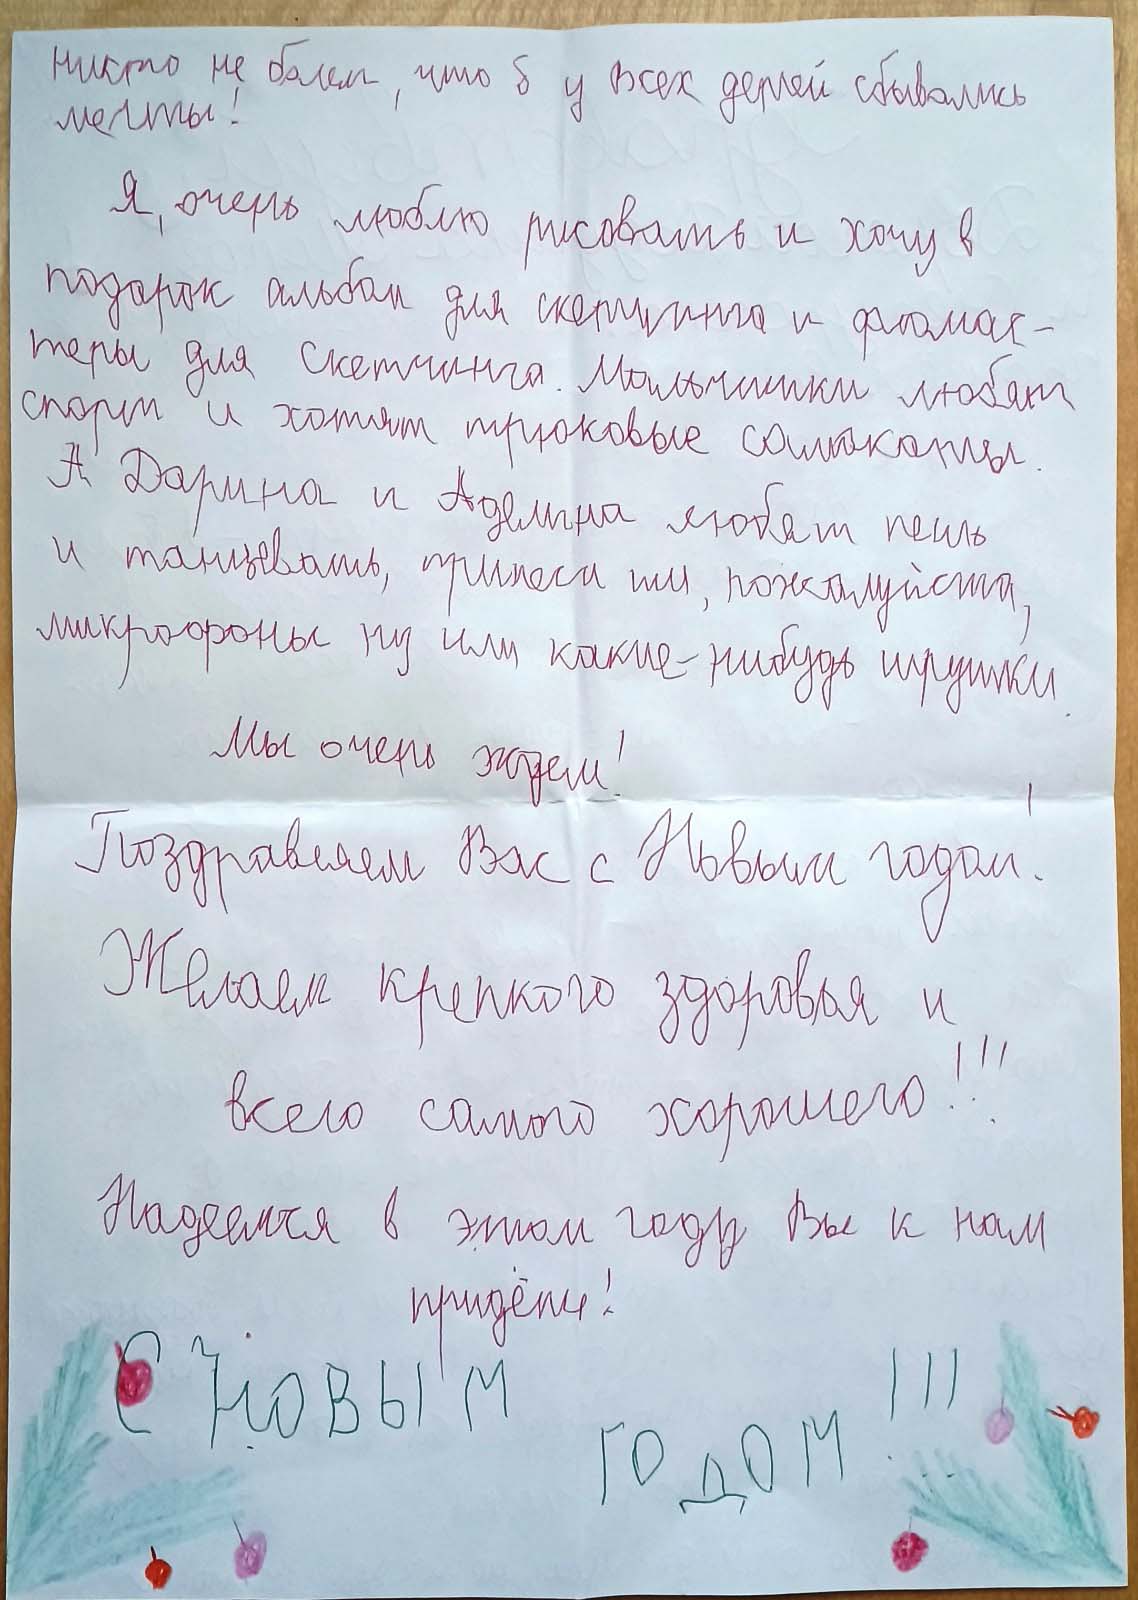 никто не болел, что б у всех детей сбывались
мечты!
Я, очень люблю рисовать и хочу в
подарок альбом для скетчинга и фломас-
теры для скетчинга. Мальчишки любят
спорт и хотят трюковые самокаты.
А Дарина и Аделина любят петь
и танцевать, принеси им, пожалуйста,
микрофоны ну или какие-нибудь игрушки.
Мы очень ждем!
Поздравляем Вас с Новым годом!
Желаем крепкого здоровья и
всего самого хорошего!!!
Надеемся в этом году Вы к нам
придёте!
С НОВЫМ
ГОДОМ!!!